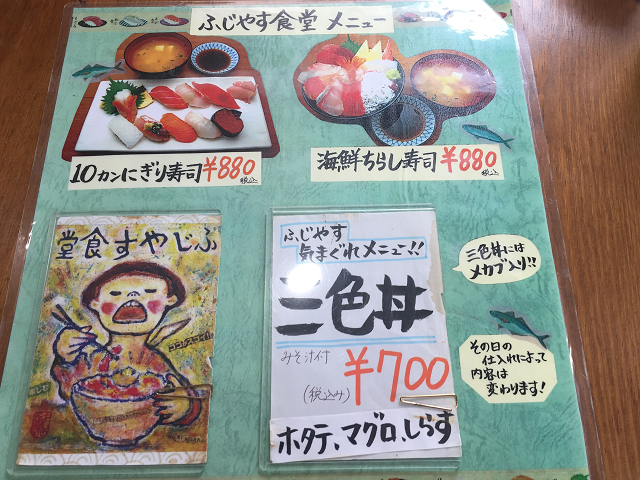 ふじやす食堂 メニュー
10カンにぎり寿司 ¥880
税込
海鮮ちらし寿司 ¥880
税込
堂食すやじふ
ふじやす
気まぐれメニュー!!
三色丼
みそ汁付
¥700
(税込み)
ホタテ、マグロ、しらす
三色丼には
メカブ入り!!
その日の
仕入れによって
内容は
変わります!